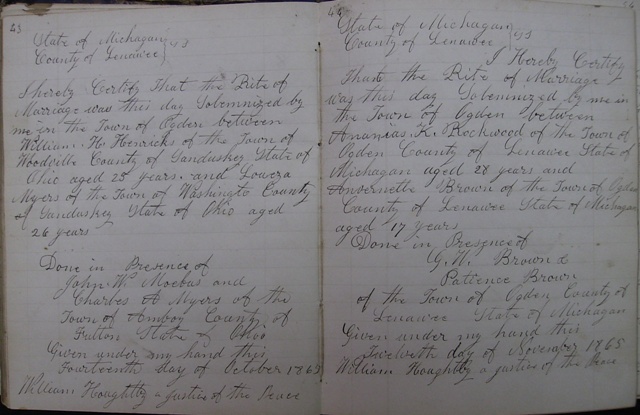 43
State of Michagan } ss
County of Lenawee
I hereby Certify That the Rite of
Marriage was this day Solemnized by
me in the Town of Ogden between
William H. Henricks of the Town of
Woodville County of Sanduskey State of
Ohio aged 25 years. and Loueza
Myers of the Town of Washingto County
of Sanduskey State of Ohio aged
26 years
Done in Presence of
John W. Moebus and
Charles A Myers of the
Town of Amboy County of
Fulton State of Ohio
Given under my hand this
Fourteenth day of October 1865
William Houghtby a justice of the Peace
44
State of Michagan } ss
County of Lenawee
I Hereby Certify
That the Rite of Marriage
was this day Solemnized by me in
the Town of Ogden between
Ananias. K. Rockwood of the Town of
Ogden County of Lenawee State of
Michagan aged 28 years and
Anvernette Brown of the Town of Ogden
County of Lenawee State of Michagan
aged 17 years
Done in Presence of
G. W. Brown &
Patience Brown
of the Town of Ogden County of
Lenawee State of Michagan
Given under my hand this
Twelveth day of November 1865
William Houghtby a justice of the Peace